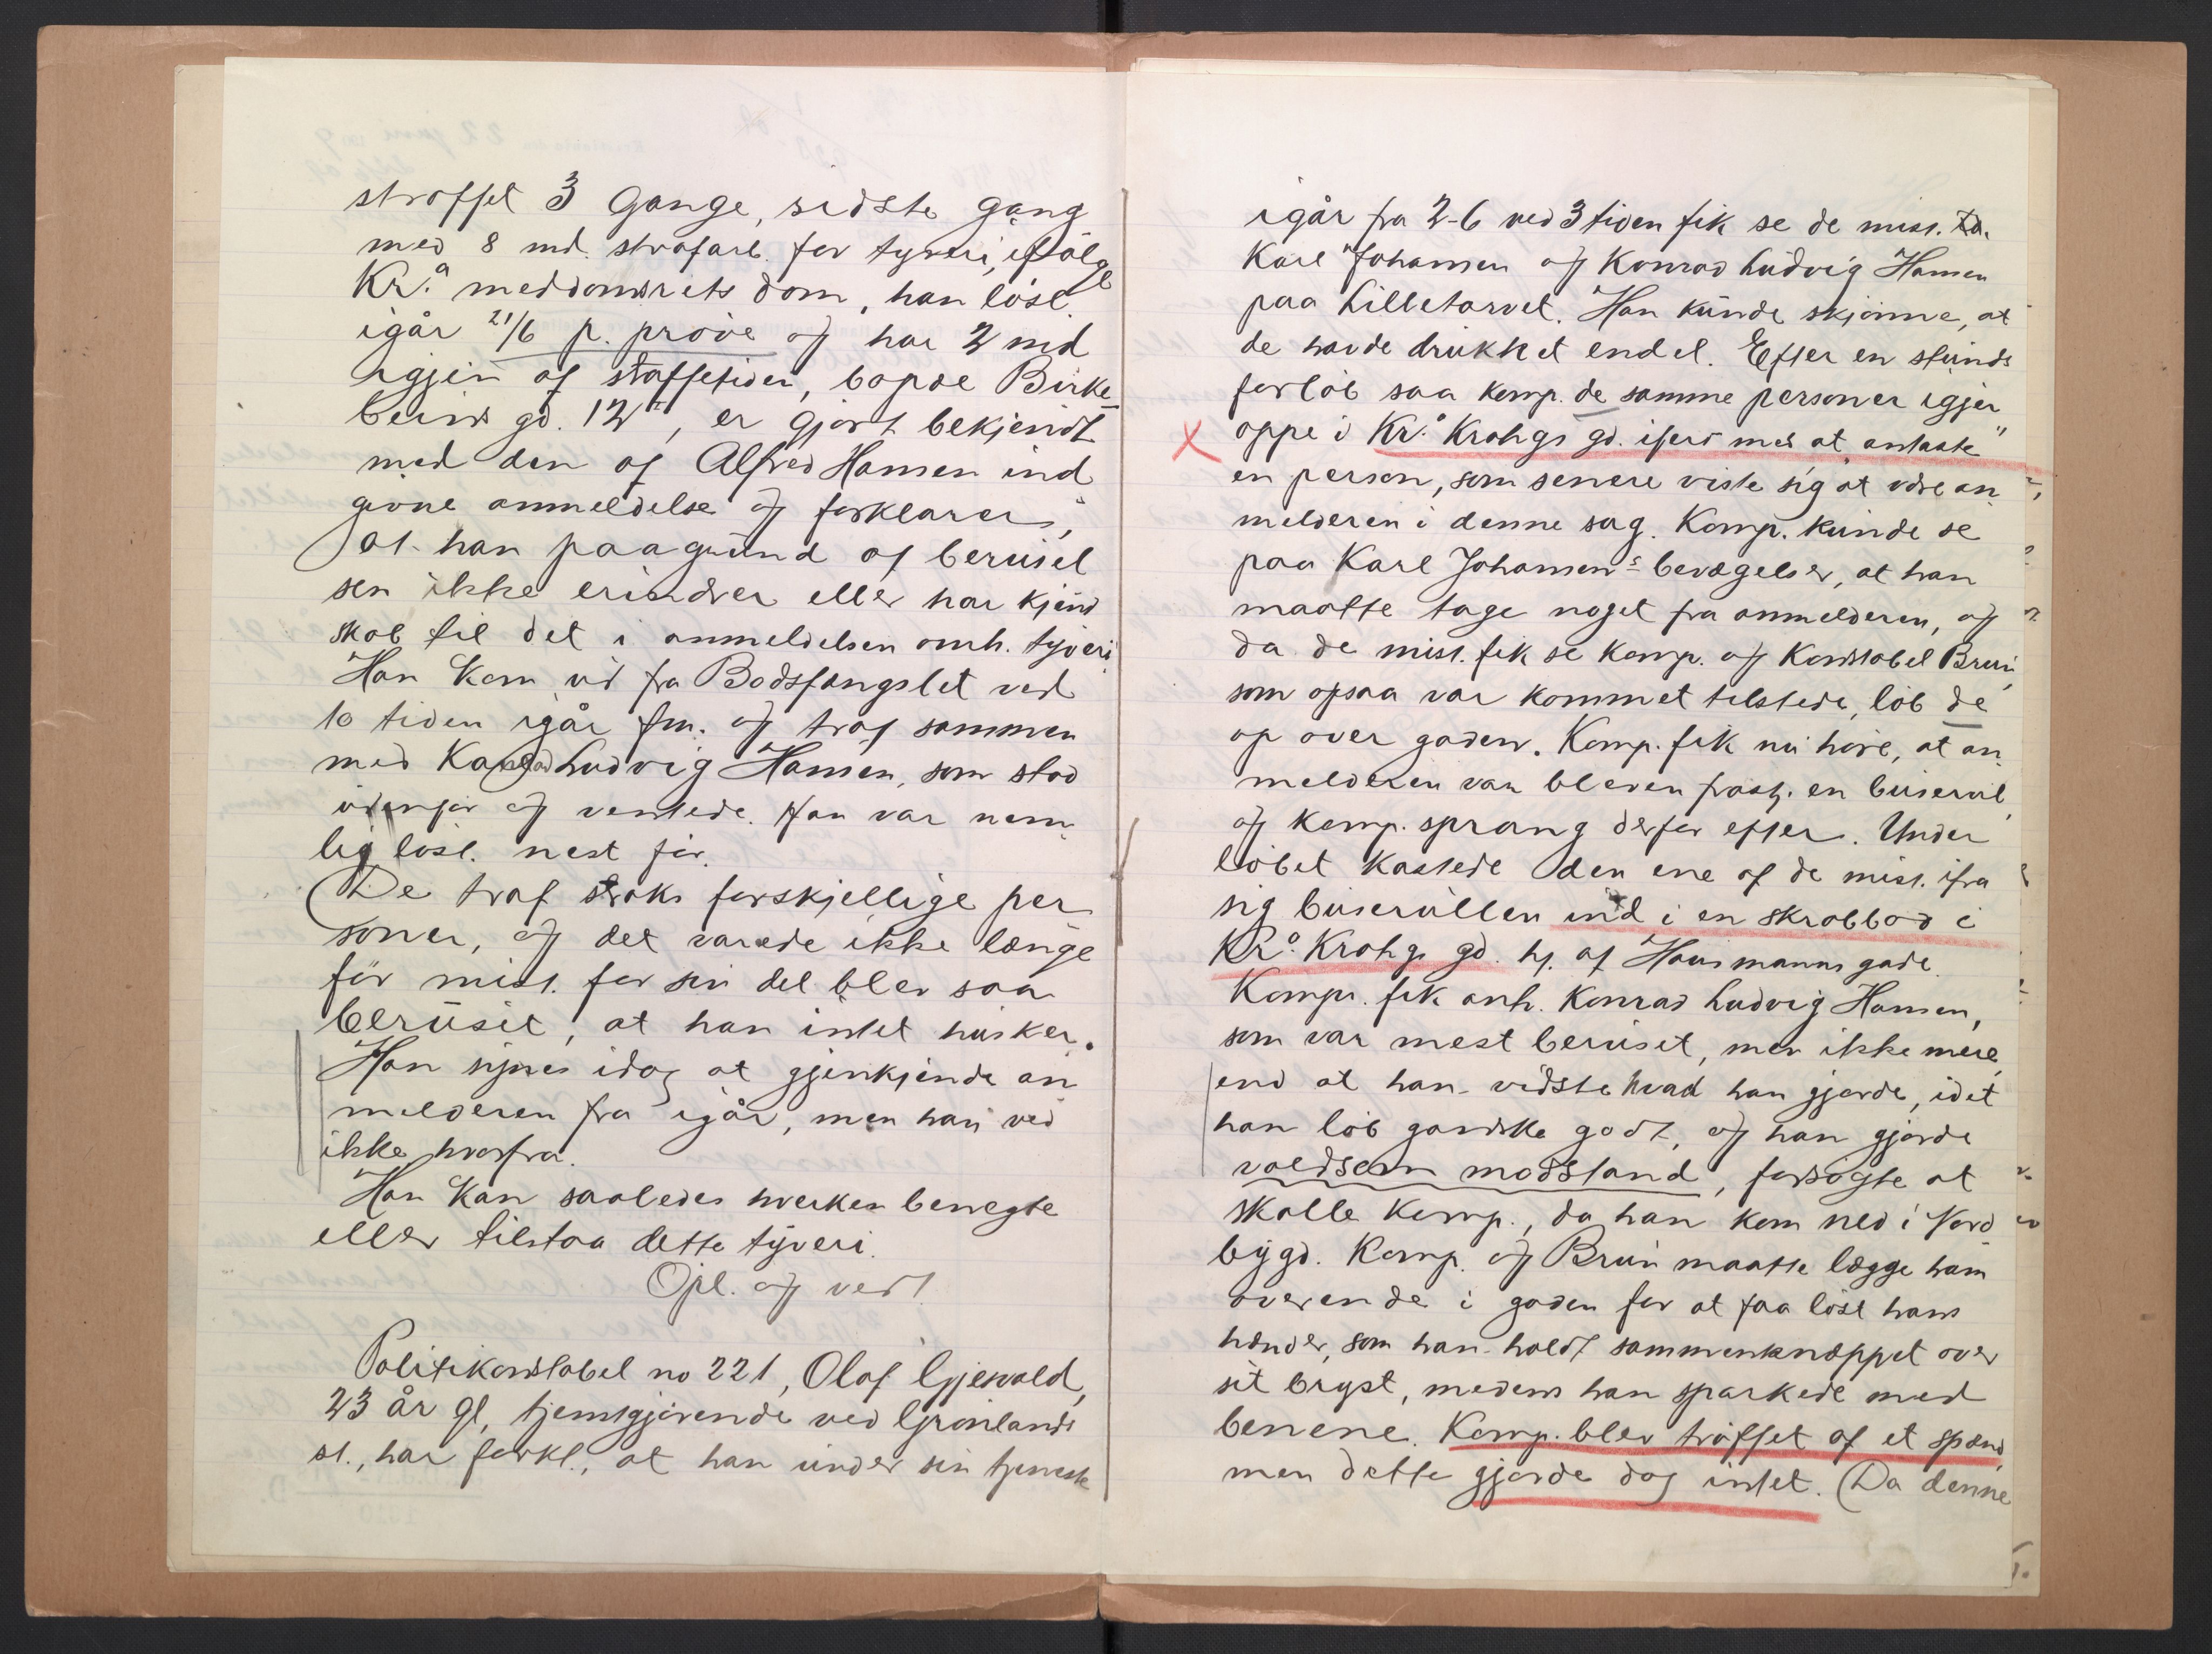 straffet 3 Gange, sidste gang
med 8 md. strafarb. for tyveri, ifölge
Kr.a meddomsrets dom, han lösl.
igår 21/6 p. pröve og har 2 md
igjen af straffetiden, bopæl Birke
beins gd. 12II, er gjort bekjendt
med den af Alfred Hansen ind
givne anmeldelse og forklarer,
at han paagrund af berusel
sen ikke erindrer eller har kjend
skab til det i anmeldelsen omh. tyveri
Han kom ud fra Bodsfængslet ved
10 tiden igår fm. og traf sammen
med Konrad Ludvig Hansen, som stod
udenfor og ventede. Han var nem
lig lösl. nest för.
De traf straks forskjellige per
soner, og det varede ikke længe
för mist. for sin del blev saa
beruset, at han intet husker.
Han synes idag at gjenkjende an
melderen fra igår, men han ved
ikke hvorfra.
Han kan saaledes hverken benegte
eller tilstaa dette tyveri.
Opl. og vedt.
Politikonstabel no 221, Olaf Gjesvold,
23 år gl, tjenstgjörende ved Grönlands
st., har forkl., at han under sin tjeneste
igår fra 2-6 ved 3 tiden fik se de mist.
Karl Johansen og Konrad Ludvig Hansen
paa Lilletorvet. Han kunde skjönne, at
de havde drukket endel. Efter en stunds
forlöb saa komp. de samme personer igjen
oppe i Kr. Krohgs gd. ifærd med at antaste
en person, som senere viste sig at være an
melderen i denne sag. Komp. kunde se
paa Karl Johansens bevægelser, at han
maatte tage noget fra anmelderen, og
da de mist. fik se komp. og Konstabel Brun,
som ogsaa var kommet tilstede, löb de
op over gaden. Komp. fik nu höre, at an
melderen var bleven frastj. en buserul,
og komp. sprang derfor efter. Under
löbet kastede den ene af de mist. ifra
sig buserullen ind i en skrabbod i
Kr. Krohgs gd. hj. af Hausmanns gade.
Komp. fik anh. Konrad Ludvig Hansen,
som var mest beruset, men ikke mere
end at han vidste hvad han gjorde, idet
han löb ganske godt, og han gjorde
voldsom modstand, forsögte at
skalle komp., da han kom ned i Nord
bygd. Komp. og Brun maatte lægge ham
overende i gaden for at faa löst hans
hænder, som han holdt sammenknæppet over
sit bryst, medens han sparkede med
benene. Komp. blev truffet af et spænd,
men dette gjorde dog intet. (Da denne